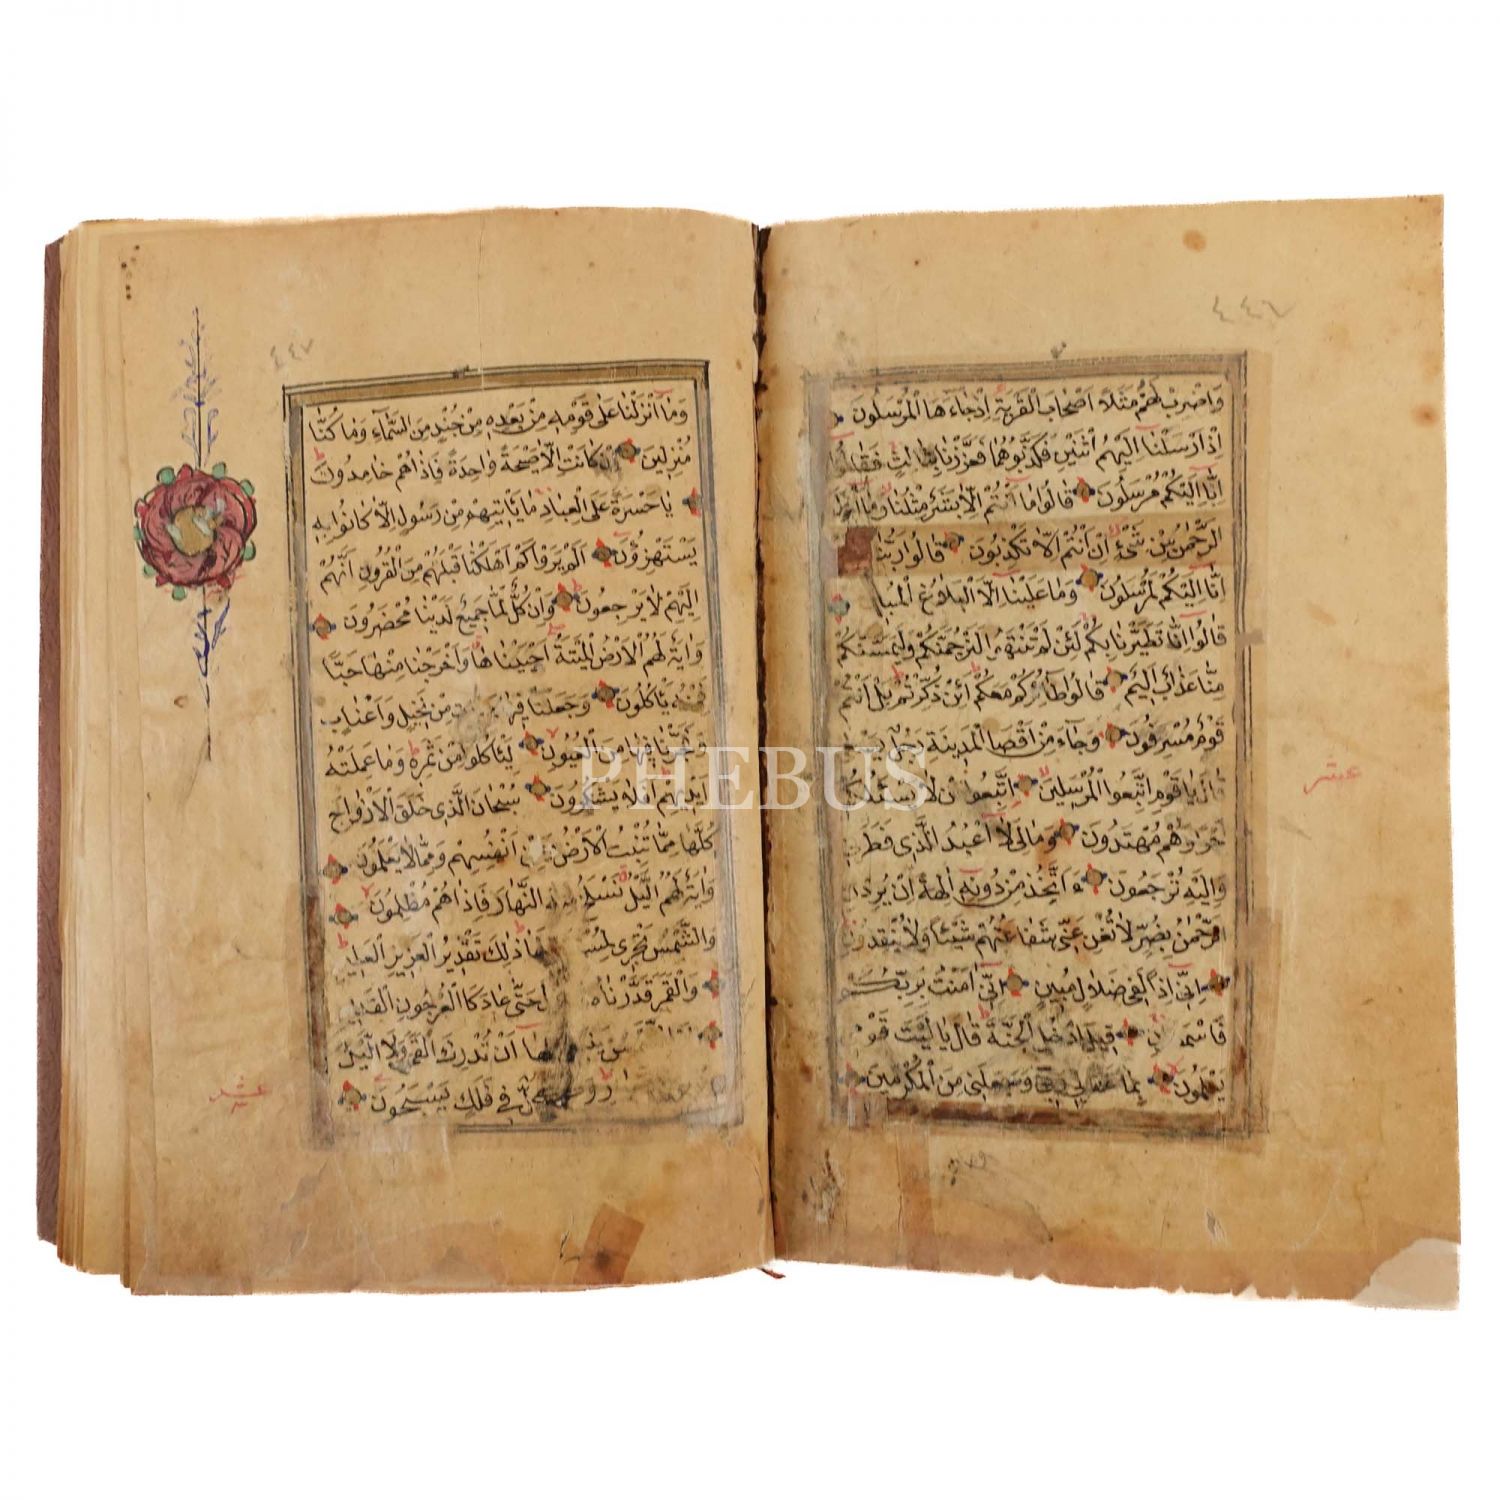 ٤٤٦
وَاضْرِبْ لَهُمْ مَثَلًا اَصْحَابَ الْقَرْيَةِ اِذْ جَاءَهَا الْمُرْسَلُونَ
اِذْ اَرْسَلْنَا اِلَيْهِمُ اثْنَيْنِ فَكَذَّبُوهُمَا فَعَزَّزْنَا بِثَالِثٍ فَقَالُوا
اِنَّا اِلَيْكُمْ مُرْسَلُونَ قَالُوا مَا اَنْتُمْ اِلَّا بَشَرٌ مِثْلُنَا وَمَا اَنْزَلَ
الرَّحْمٰنُ مِنْ شَيْءٍ اِنْ اَنْتُمْ اِلَّا تَكْذِبُونَ قَالُوا رَبُّنَا
اِنَّا اِلَيْكُمْ لَمُرْسَلُونَ وَمَا عَلَيْنَا اِلَّا الْبَلَاغُ
قَالُوا اِنَّا تَطَيَّرْنَا بِكُمْ لَئِنْ لَمْ تَنْتَهُوا لَنَرْجُمَنَّكُمْ وَلَيَمَسَّنَّكُمْ
مِنَّا عَذَابٌ اَلِيمٌ قَالُوا طَائِرُكُمْ مَعَكُمْ اَئِنْ ذُكِّرْتُمْ بَلْ اَنْتُمْ
قَوْمٌ مُسْرِفُونَ وَجَاءَ مِنْ اَقْصَا الْمَدِينَةِ
قَالَ يَا قَوْمِ اتَّبِعُوا الْمُرْسَلِينَ اِتَّبِعُوا مَنْ لَا يَسْئَلُكُمْ
وَهُمْ مُهْتَدُونَ وَمَا لِيَ لَا اَعْبُدُ الَّذِي
وَاِلَيْهِ تُرْجَعُونَ ءَاَتَّخِذُ مِنْ دُونِهِ اٰلِهَةً اِنْ يُرِدْنِ
الرَّحْمٰنُ بِضُرٍّ لَا تُغْنِ عَنِّي شَفَاعَتُهُمْ شَيْئًا وَلَا يُنْقِذُونِ
اِنِّي اِذًا لَفِي ضَلَالٍ مُبِينٍ اِنِّي اٰمَنْتُ بِرَبِّكُمْ
قِيلَ ادْخُلِ الْجَنَّةَ قَالَ يَا لَيْتَ
يَعْلَمُونَ بِمَا وَجَعَلَنِي مِنَ الْمُكْرَمِينَ
عشر
٤٤٧
وَمَا اَنْزَلْنَا عَلٰى قَوْمِهِ مِنْ بَعْدِهِ مِنْ جُنْدٍ مِنَ السَّمَاءِ وَمَا كُنَّا
مُنْزِلِينَ اِنْ كَانَتْ اِلَّا صَيْحَةً وَاحِدَةً فَاِذَا هُمْ خَامِدُونَ
يَا حَسْرَةً عَلَى الْعِبَادِ مَا يَأْتِيهِمْ مِنْ رَسُولٍ اِلَّا كَانُوا بِهِ
يَسْتَهْزِؤُنَ اَلَمْ يَرَوْا كَمْ اَهْلَكْنَا قَبْلَهُمْ مِنَ الْقُرُونِ اَنَّهُمْ
اِلَيْهِمْ لَا يَرْجِعُونَ وَاِنْ كُلٌّ لَمَّا جَمِيعٌ لَدَيْنَا مُحْضَرُونَ
وَاٰيَةٌ لَهُمُ الْاَرْضُ الْمَيْتَةُ اَحْيَيْنَاهَا وَاَخْرَجْنَا مِنْهَا حَبًّا
فَمِنْهُ يَأْكُلُونَ وَجَعَلْنَا فِيهَا مِنْ نَخِيلٍ وَاَعْنَابٍ
وَفَجَّرْنَا فِيهَا مِنَ الْعُيُونِ لِيَأْكُلُوا مِنْ ثَمَرِهِ وَمَا عَمِلَتْهُ
اَيْدِيهِمْ اَفَلَا يَشْكُرُونَ سُبْحَانَ الَّذِي خَلَقَ الْاَزْوَاجَ
كُلَّهَا مِمَّا تُنْبِتُ الْاَرْضُ وَمِنْ اَنْفُسِهِمْ وَمِمَّا لَا يَعْلَمُونَ
وَاٰيَةٌ لَهُمُ الَّيْلُ نَسْلَخُ النَّهَارَ فَاِذَا هُمْ مُظْلِمُونَ
وَالشَّمْسُ تَجْرِي ذٰلِكَ تَقْدِيرُ الْعَزِيزِ الْعَلِيمِ
وَالْقَمَرَ قَدَّرْنَاهُ حَتّٰى عَادَ كَالْعُرْجُونِ الْقَدِيمِ
اَنْ تُدْرِكَ الْقَمَرَ وَلَا الَّيْلُ
فِي فَلَكٍ يَسْبَحُونَ
عشر
PHEBUS